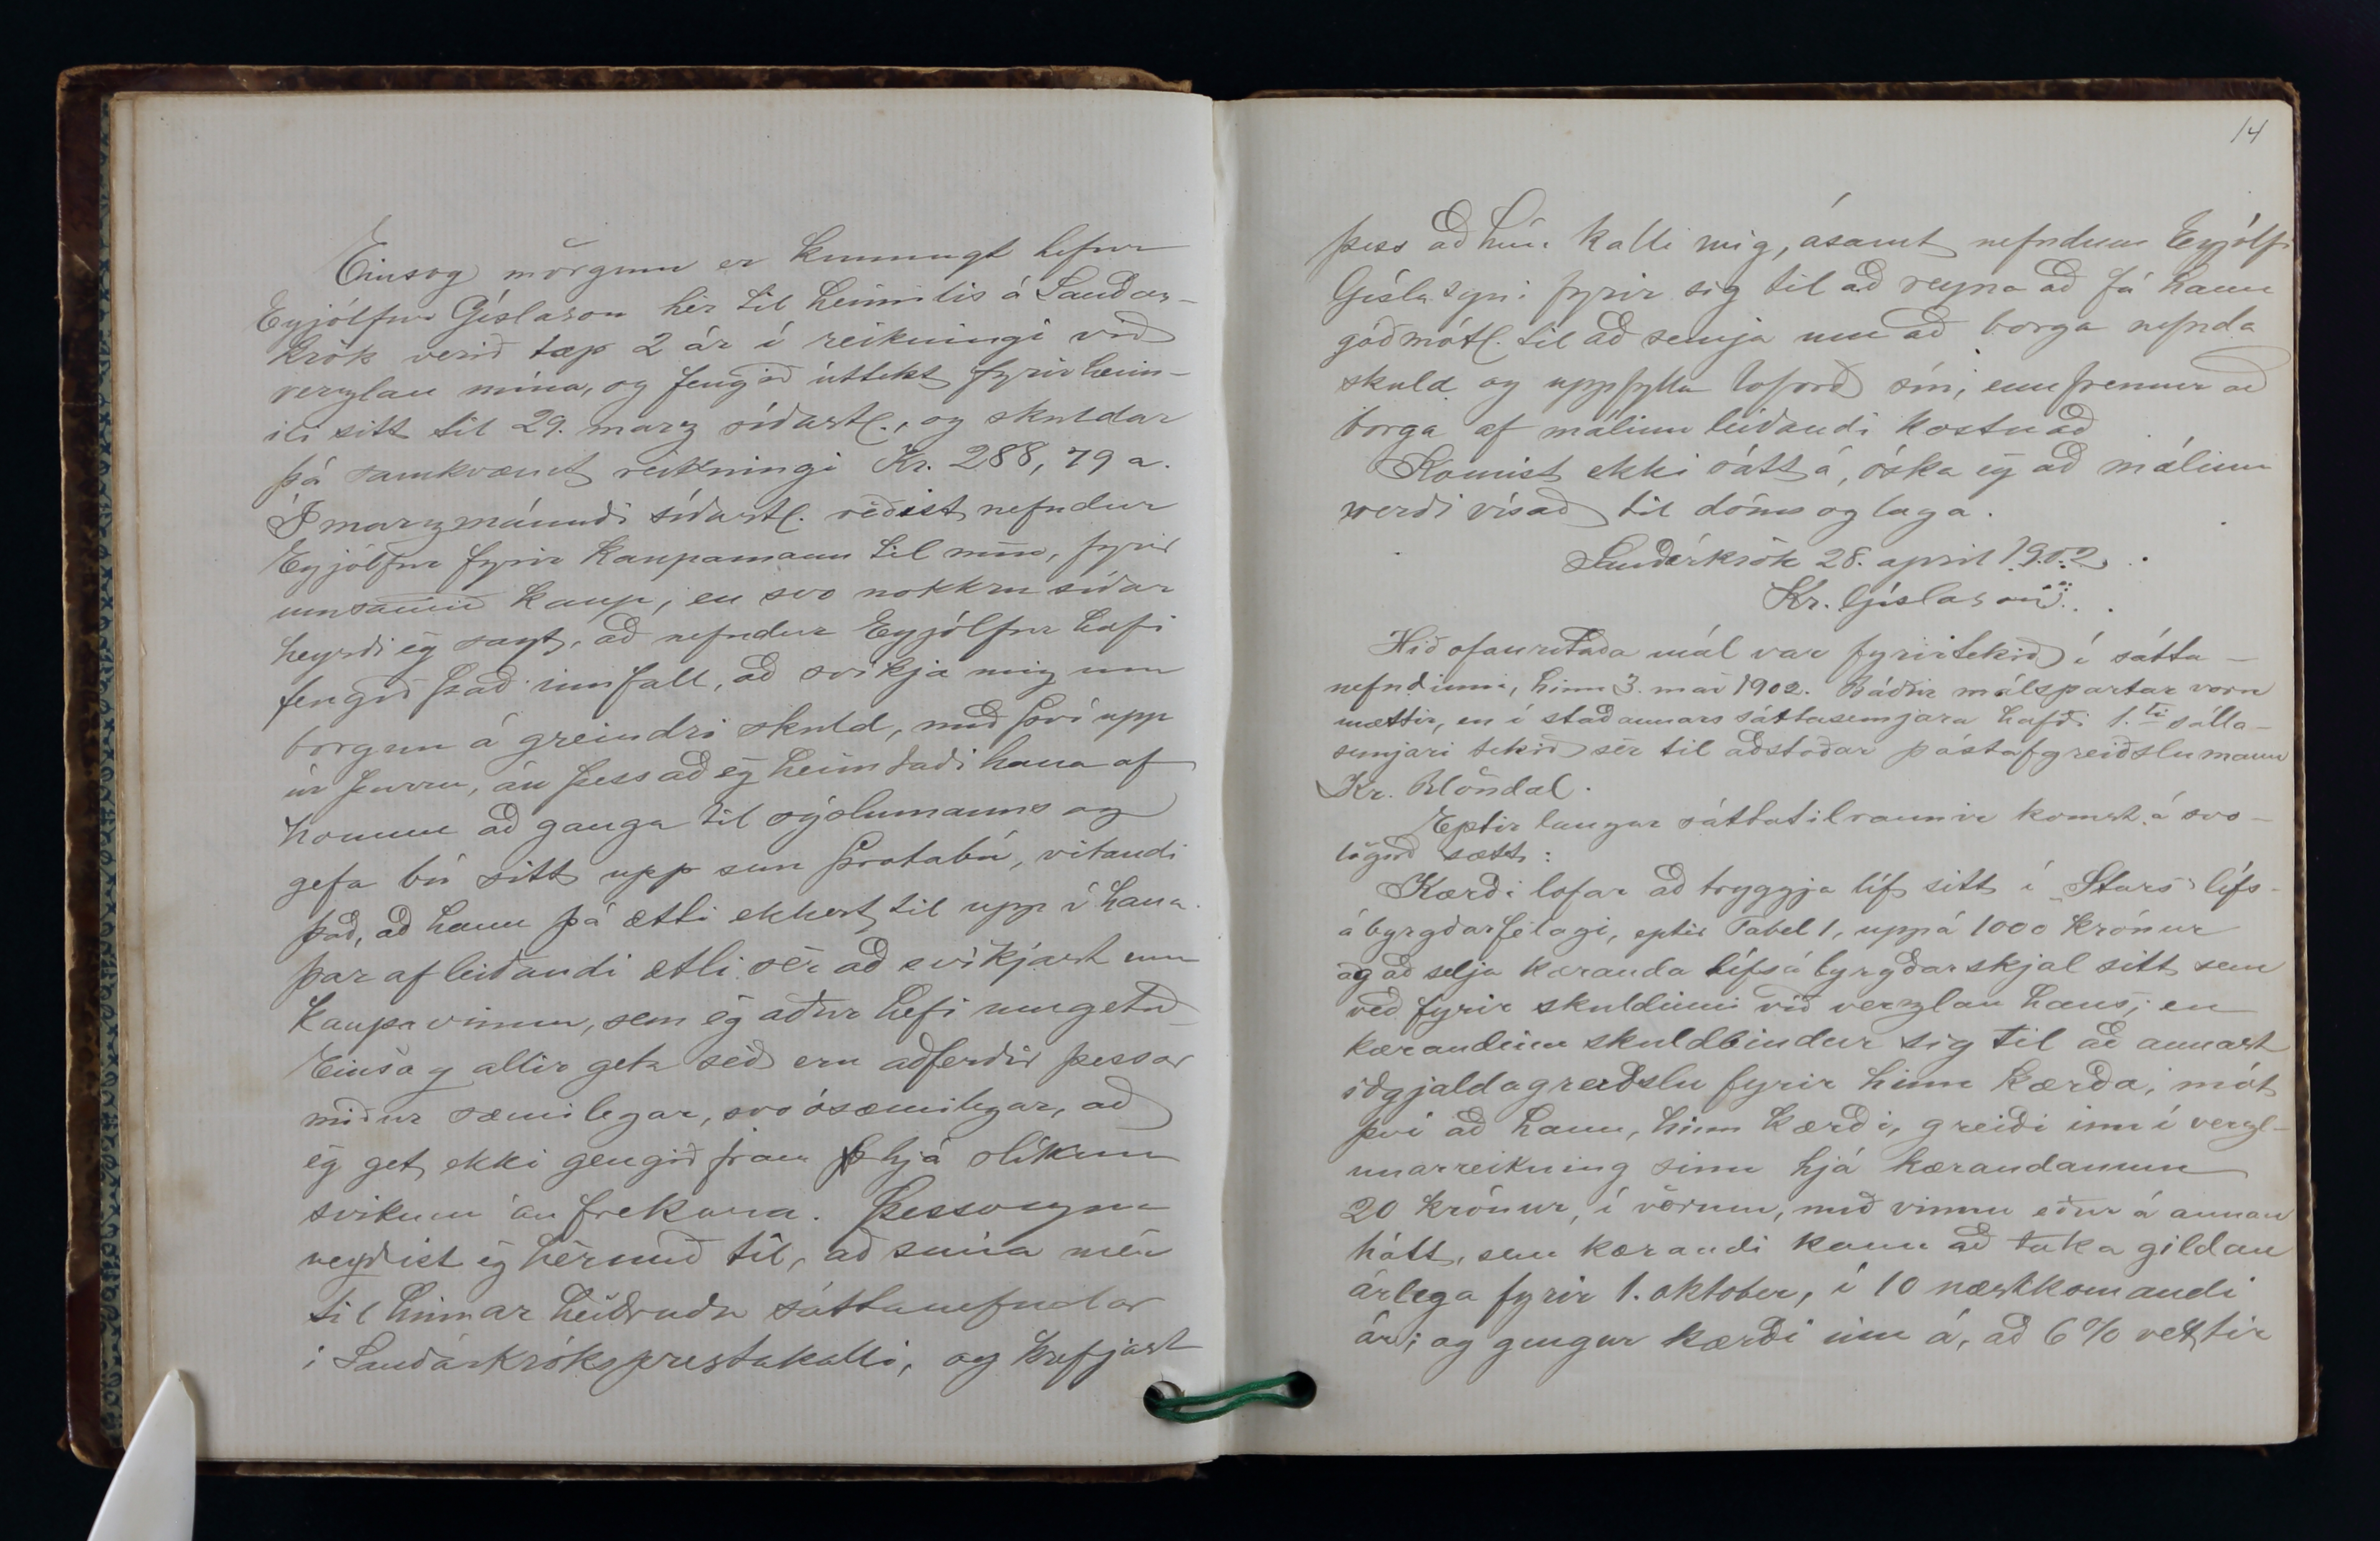 Einsog mörgum er kunnugt hefur
Eyjólfur Gíslason hér til heimilis á Sauðár-
krók verið tæp 2 ár í reikningi við
verzlan mína, og fengið úttekt fyrir heim-
ili sitt til 29. marz síðastl., og skuldar
þá samkvæmt reikningi Kr. 288,79 a.
Í marzmánuði síðastl. réðist nefndur
Eyjólfur fyrir kaupamann til mín, fyrir
umsamið kaup, en svo nokkru síðar
heyrði ég sagt, að nefndur Eyjólfur hafi
fengið það innfall, að svíkja mig um
borgun á greindri skuld, með því upp
úr þurru, án þess að ég heimtaði hana af
honum að ganga til sýslumanns og
gefa bú sitt upp sem þrotabú, vitandi
það, að hann þá ætti ekkert til upp í hana.
þar af leiðandi ætli sér að svíkjast um
kaupavinnu, sem ég áður hefi umgetið
Einsog allir geta séð eru aðferðir þessar
miður sæmilegar, svo ósæmilegar, að
ég get ekki gengið fram hjá slíkum
svikum án frekara. Þessvegna
neyðist ég hérmeð til, að snúa mér
til hinnar heiðruðu sáttanefndar
í Sauðárkróksprestakalli, og krefjast
14
þess að hún kalli mig, ásamt nefndum Eyjólfi
Gíslasyni fyrir sig til að reyna að fá hann
góðmótl. til að semja um að borga nefnda
skuld og uppfylla loforð sín, ennfremur að
borga af málinu leiðandi kostnað
Komist ekki sátt á, óska ég að málinu
verði vísað til dóms og laga.
Sauðárkrók 28. april 1902.
Kr. Gíslason
Hið ofanritaða mál var fyrirtekið í sátta-
nefndinni, hinn 3. maí 1902. Báðir málspartar voru
mættir, en í stað annars sáttasemjara hafði 1.ti sátta-
semjari tekið sér til aðstoðar póstafgreiðslumann
Kr. Blöndal.
Eptir langar sáttatilraunir komst á svo-
lögð sætt:
Kærði lofar að tryggja líf sitt í „Stars“ lífs-
ábyrgðarfélagi, eptir Tabel 1, uppá 1000 krónur
og að selja kæranda lífsábyrgðarskjal sitt sem
veð fyrir skuldinni við verzlan hans; en
kærandinn skuldbindur sig til að annast
iðgjaldagreiðslu fyrir hinn kærða, mót
því að hann, hinn kærði, greiði inn í verzl-
unarreikning sinn hjá kærandanum
20 krónur, í vörum, með vinnu eður á annan
hátt, sem kærandi kann að taka gildan
árlega fyrir 1. oktober, í 10 næstkomandi
ár; og gengur kærði inn á, að 6% vextir